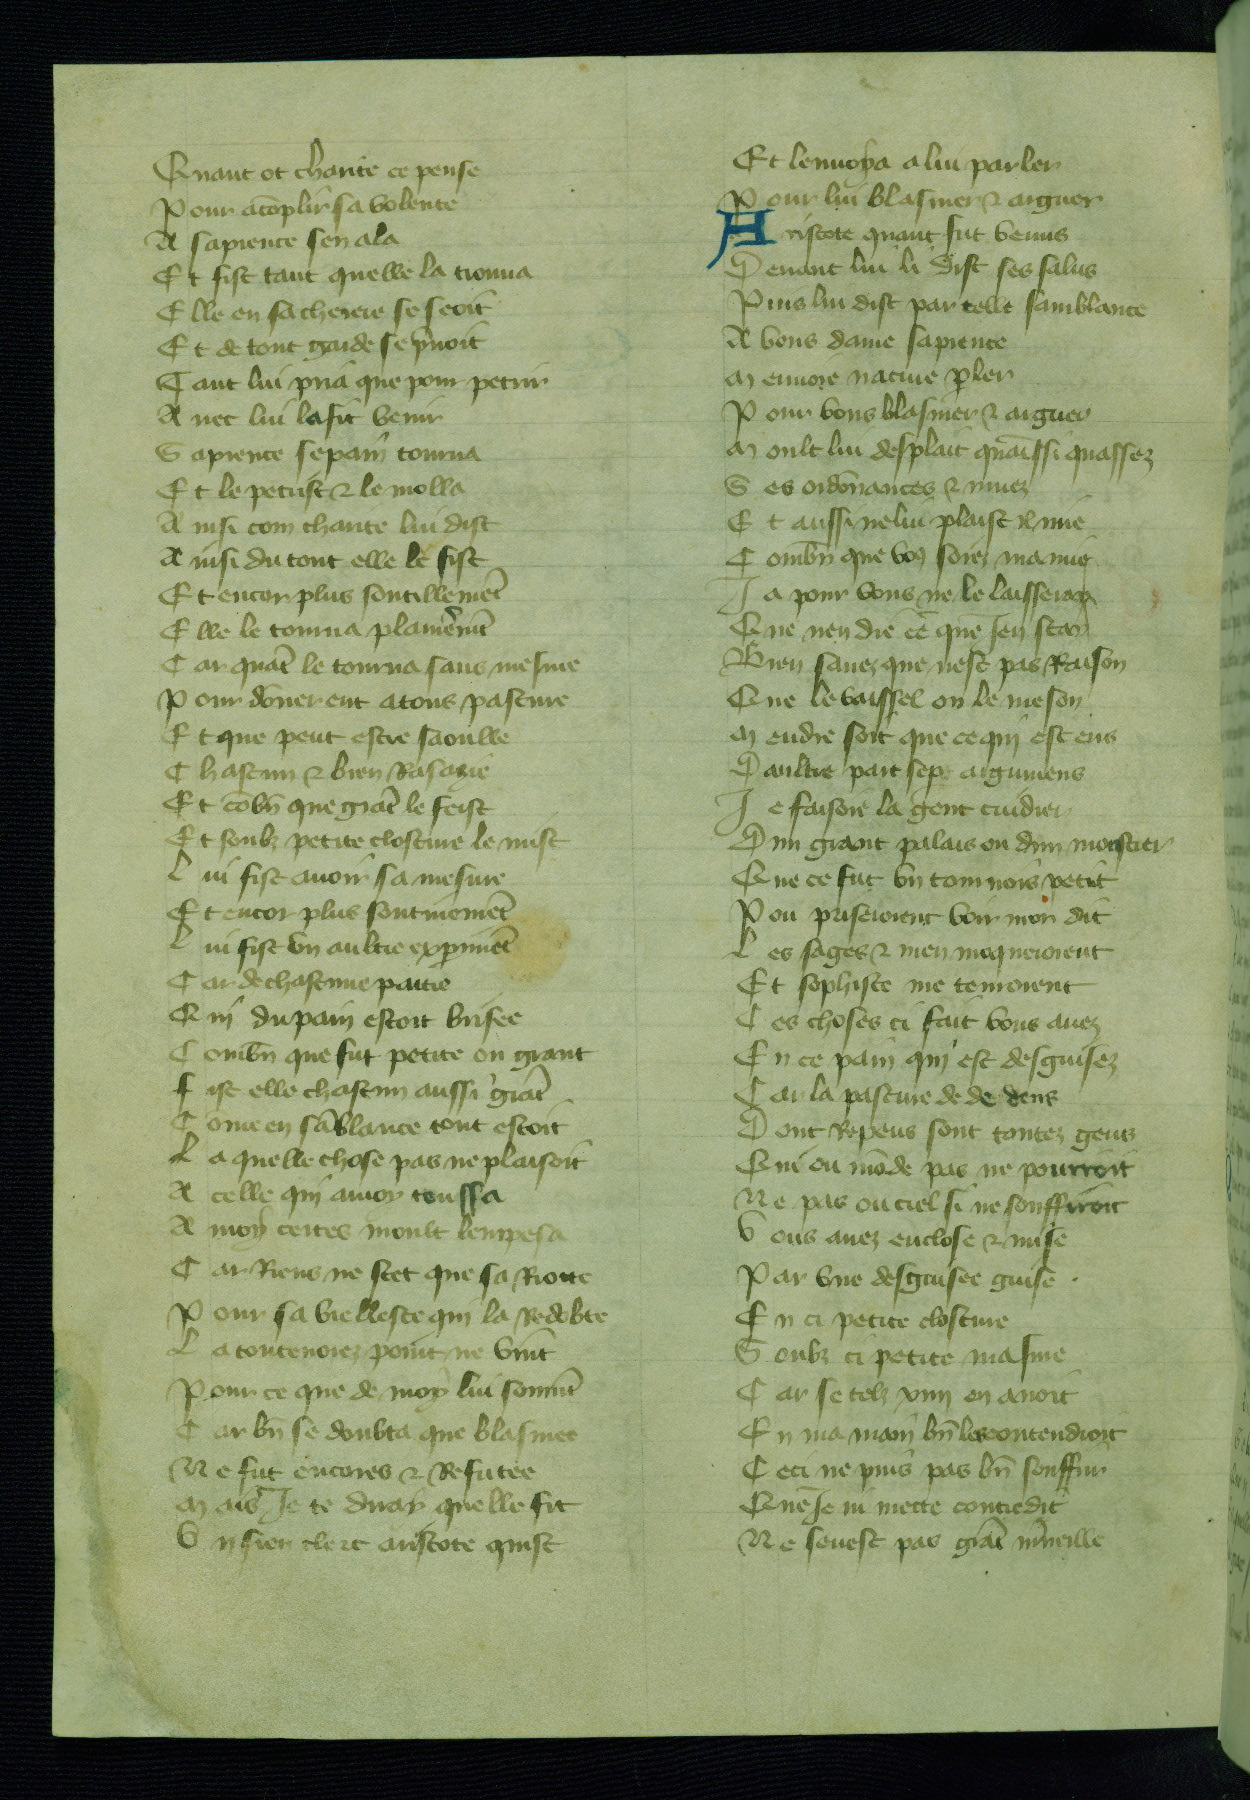 Quant ot charite ce pense
Pour acōplir sa volente
A sapience sen ala
Et fist tant quelle la trouua
Elle en sa cheiere se seoit
Et de tout garde se pͬnoit
Tant lui pria que pour petrir
Auec lui la fit venir
Sapience se pain tourna
Et le petrist ⁊ le molla
Ainsi com charite lui dist
Ainsi du tout elle le fist
Et encor plus soutillemēt
Elle le tourna plainemēt
Car quāt le tourna sans mesure
Pour dōner ent a tous pasture
Et que peut estre saoulle
Chascun ⁊ bien Rasazie
Et cōbn̄ que grāt le feist
Et soubz petite closture le mist
Lui fist auoir sa mesure
Et encor plus soutiuemēt
Lui fist vn aultre expimēt
Car de chascune partie
Qui du pain estoit brisee
Combn̄ que fut petite ou grant
Fist elle chascun aussi grāt
Cōme en sāblance tout estoit
La quelle chose pas ne plaisoit
A celle qui auoy toussa
A moy certes moult lempesa
Car Riens ne scet que sa Riotte
Pour sa viellesce qui la Redobte
La toutenoiez point ne vint
Pour ce que de moy lui souuīt
Car bn̄ se doubta que blasmee
Ne fut encores ⁊ Refutee
Mais Je te diray quelle fit
Vn sien clerc aristote quist
Et lenuoya a lui parler
Pour lui blasmer ⁊ arguer
Aristote quant fut venus
Deuant lui li dist ses salus
Puis lui dist par telle samblance
A vous dame sapience
Menuoie nature ꝑler
Pour vous blasmer ⁊ arguer
Moult lui desplait quāissi quassez
Ses ordōnances ⁊ muez
Et aussi ne lui plaist il mie
Combn̄ que voꝯ soiez mamie
Ja pour vous ne le laisseray
Que nen die cē que Jen scay
Bien sauez que nest pas Raison
Que le vaissel ou le meson
Mendre soit que ce qui est ens
Daultre part se par argumens
Je faisoie la gent cuidier
Dun grant palais ou dun monstier
Que ce fut vn tournois petit
Pou priseroient voir mon dit
Les sages ⁊ men moqueroient
Et sophiste me tenroient
Ces choses ci fait vous auez
En ce pain qui est desguisez
Car la pasture de dedens
Dont Repeus sont toutez gens
Qui ou mōde pas ne pourroit
Ne pas ou ciel si ne souffiroit
Vous auez enclose ⁊ mise
Par vne desguisee guise .
En ci petite closture
Soubz ci petite masure
Car se telz xiiii en auoit
En ma main bn̄ les contendroit
Ceci ne puis pas bn̄ souffrir
Que Je ni mette contredit
Ne seuest pas grāt mͬueille